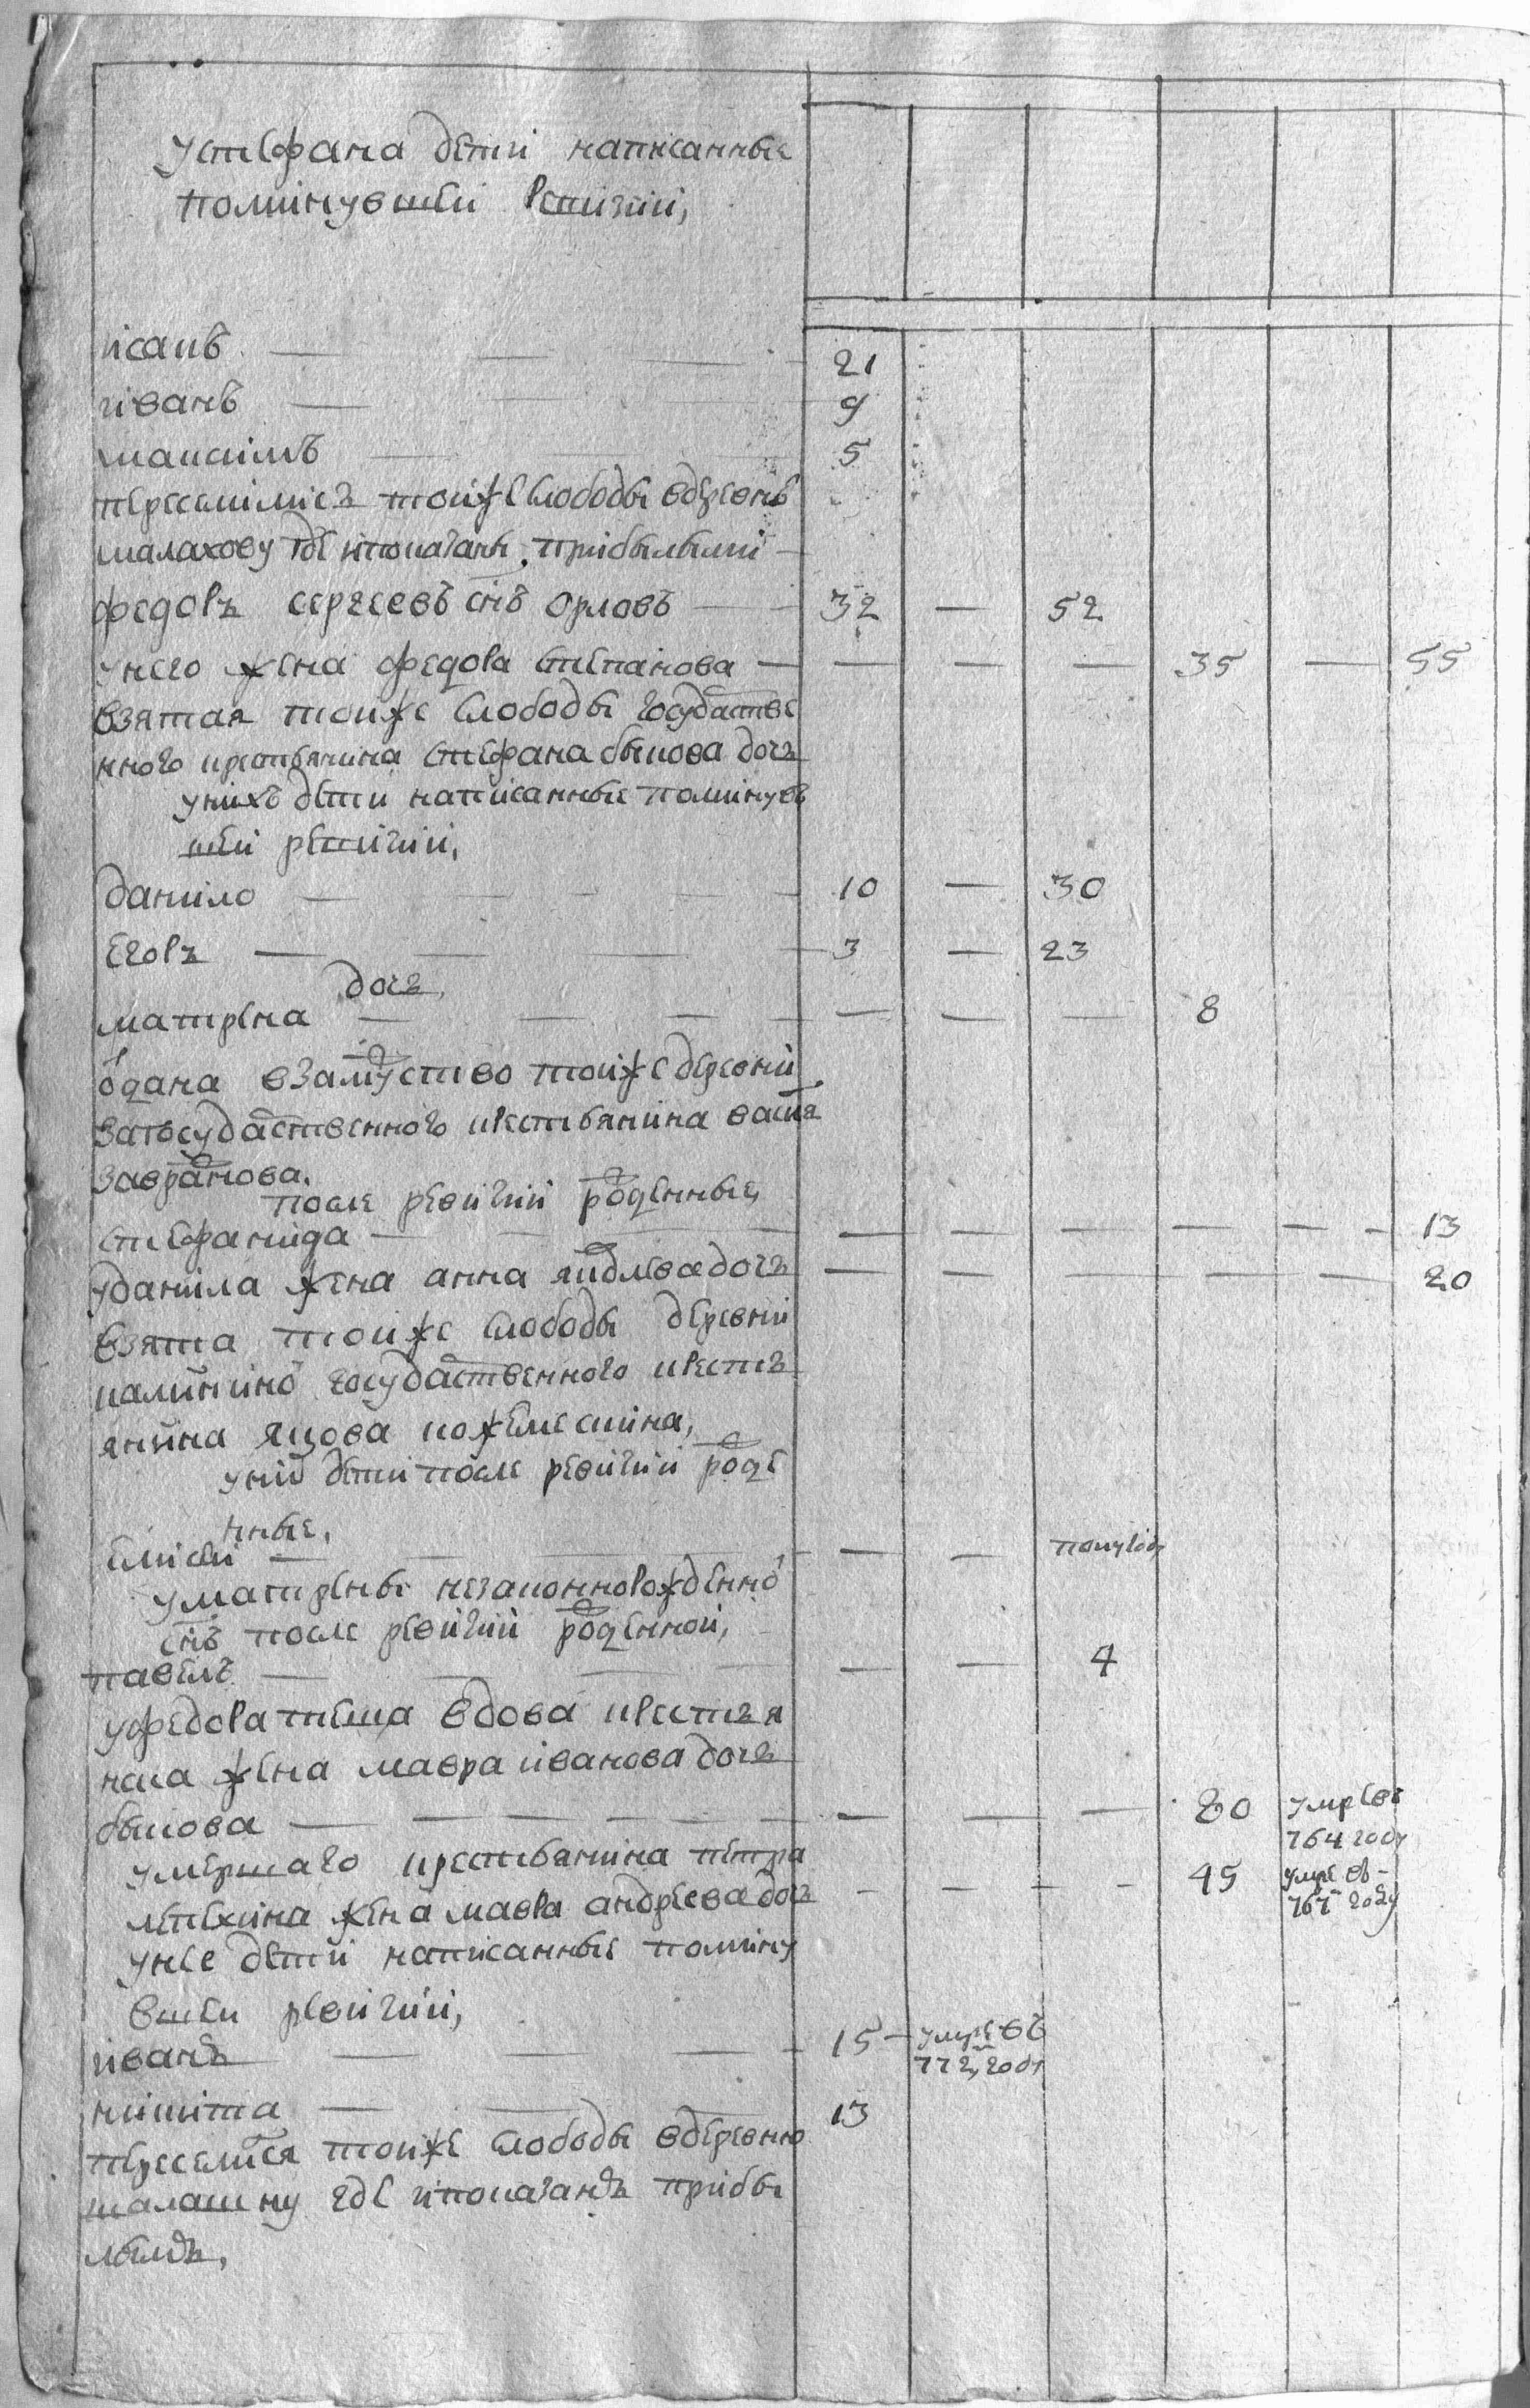 устефана дети написанные
поминувшеи ревизии,
исакъ — — — 21
иванъ — — 9
максимъ — — 5
переселились тоиже слободы вдеревнѣ
малахову где ипоказаны прибылыми —
федоръ сергеевъ снъ орловъ — 32 — 52
унего жена федора степанова — — — — 35 — 55
взятая тоиже слободы государстве
нного крестьянина стефана быкова дочь
унихъ дети написанные поминув
шеи ревизии,
данило — — — 10 — 30
егоръ — — — 3 — 23
дочь
матрена — — — — — — 8
одана взамуство тоиже деревни
загосударственного крестьянина васил
после ревизии рожденные,
стефанида — — — — — — — — 13
уданила жена анна яковлева дочь — — — — — 20
взята тоиже слободы деревни
калининои государственного кресть
янина якова
унии дети после ревизии рожде
нные,
елисеи — — — — — полугоду
уматрены незаконнорожденнои
снъ после ревизии рожденнои,
павелъ — — — — — 4
уфедора теща вдова крестья
нска жена мавра иванова дочь
быкова — — — — — — — 80 умре въ
764 году
умершаго крестьянина петра
лепехина жена мавра андреева дочь — — — — 45 умре въ
767 году
унее дети написанные помину
вшеи ревизии,
иванъ — — — 15 — умре въ
772, году
никита — — — 13
переселился тоиже слободы вдеревню
малашку где ипоказанъ прибы
лымъ,